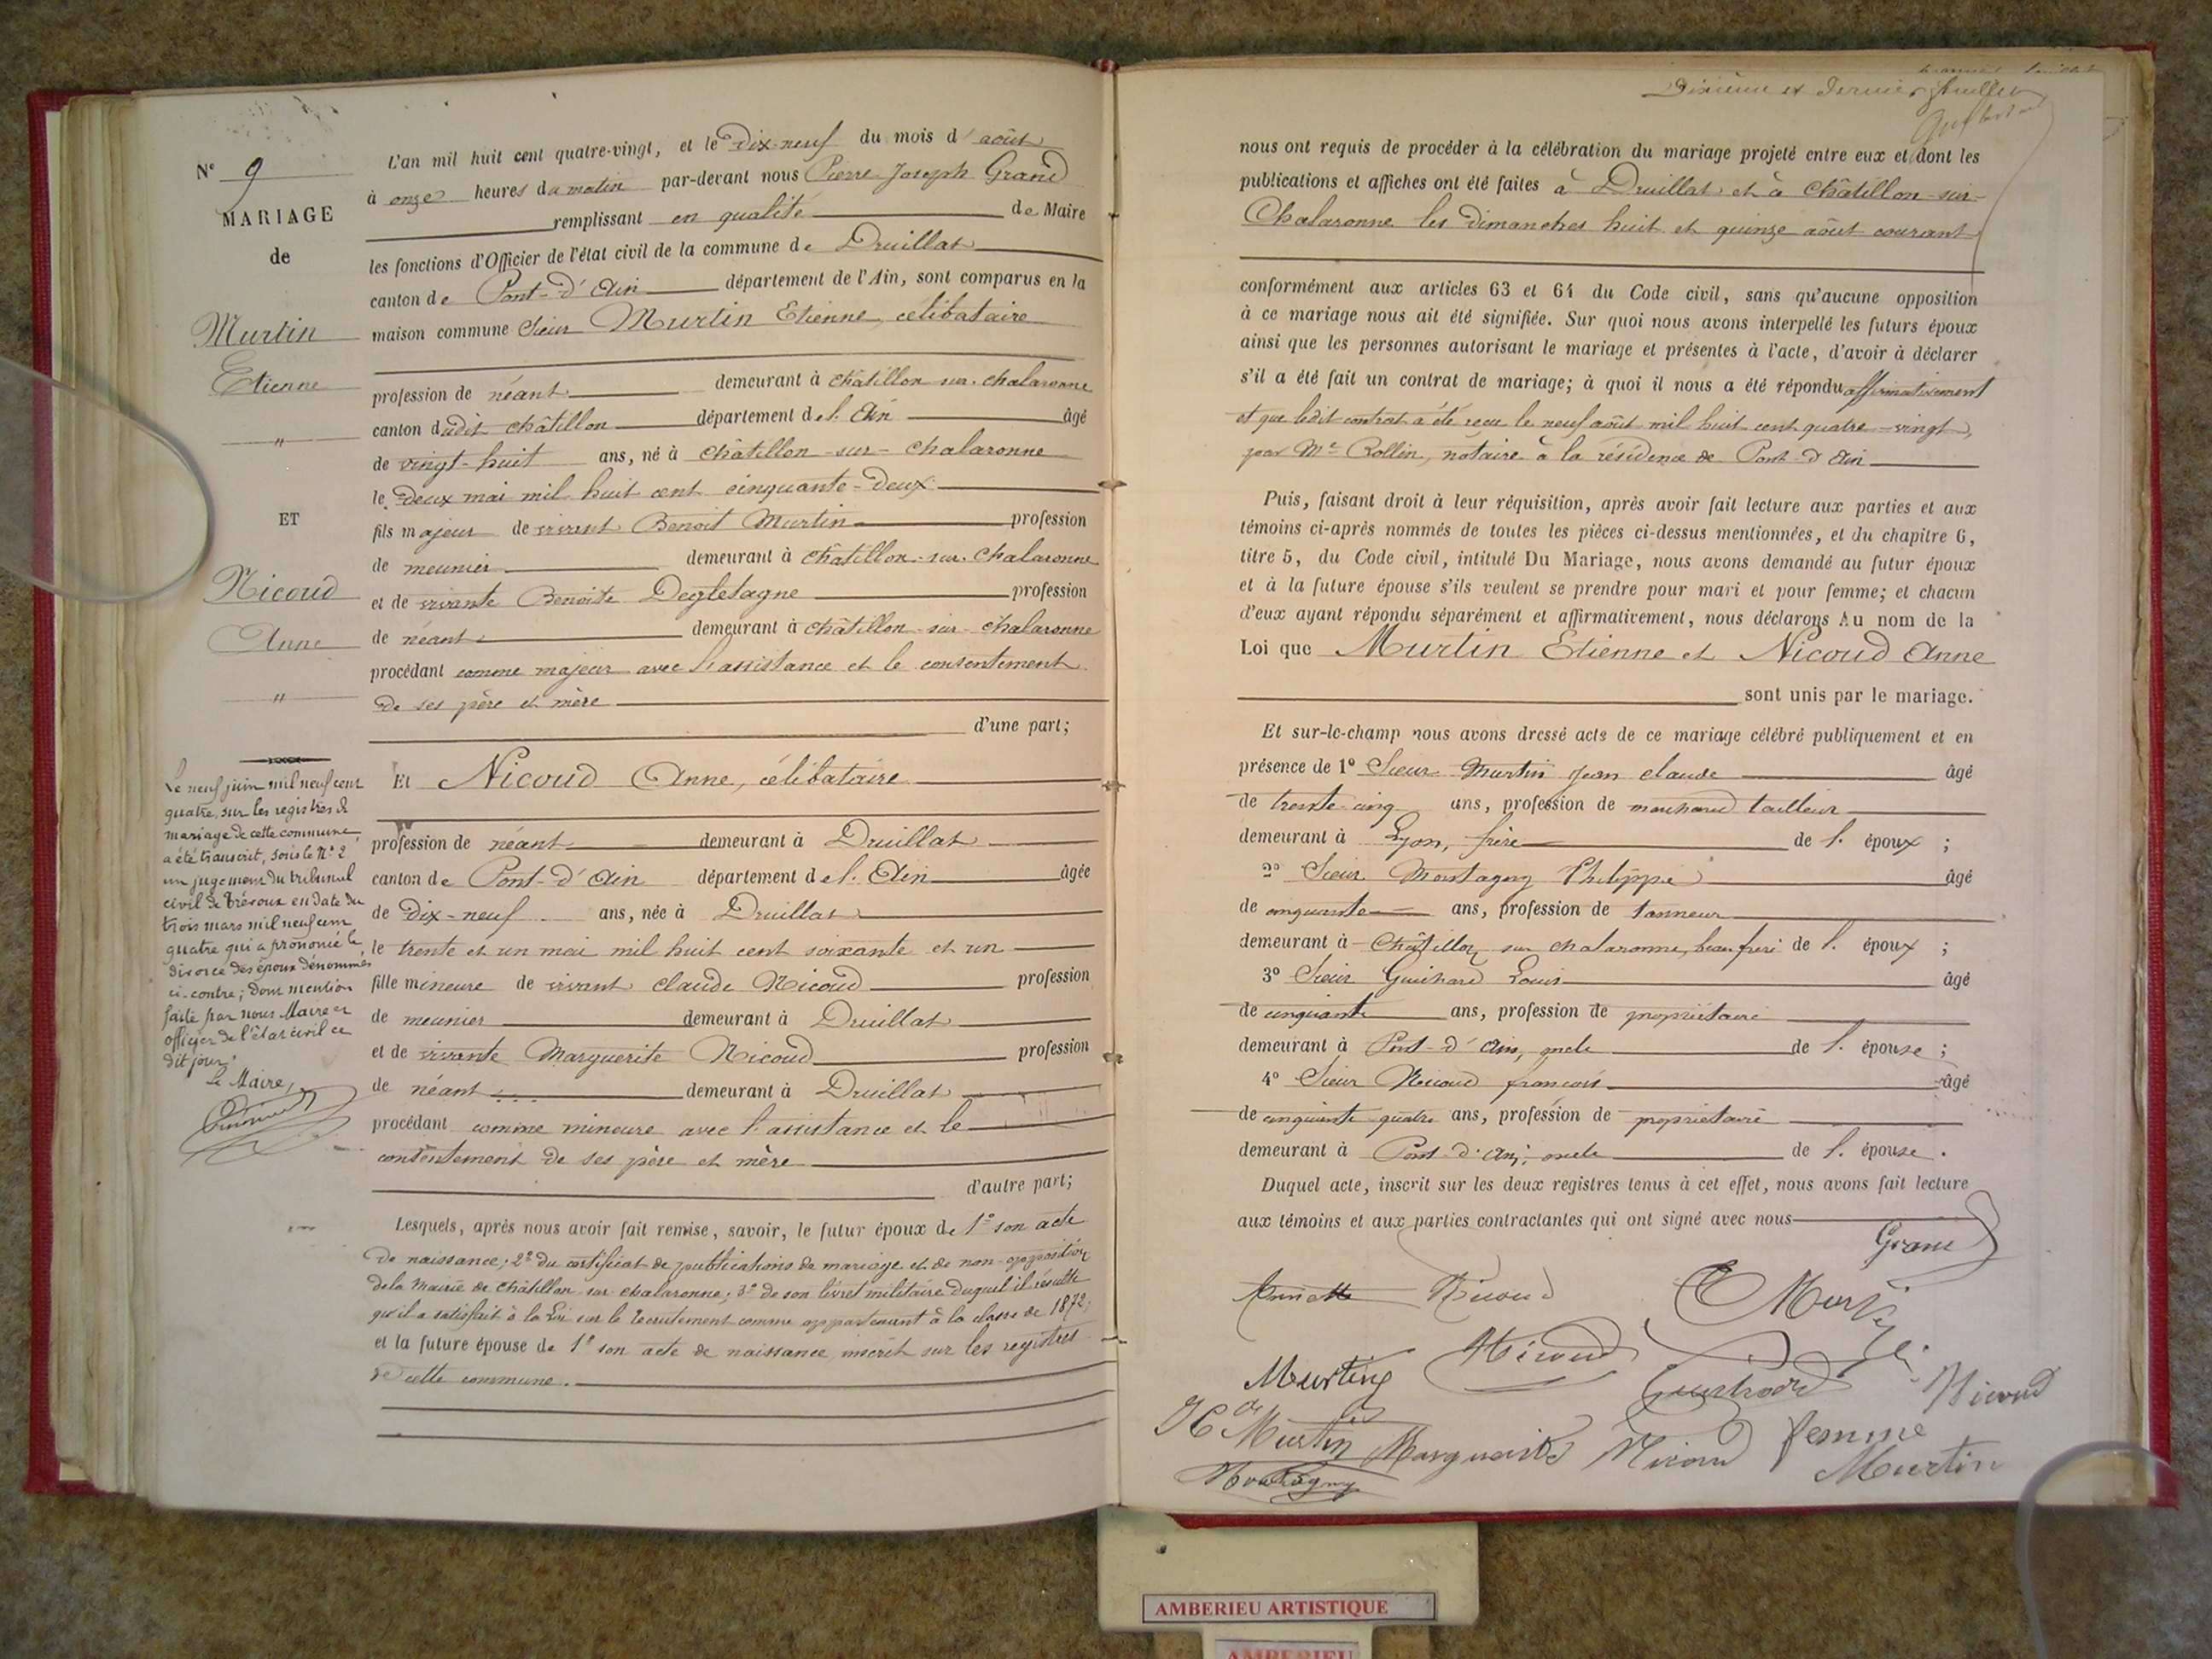 N° 9
MARIAGE
de
Murtin
Etienne
"
ET
Nicoud
Anne
"
Le neuf juin mil neuf cent
quatre, sur les registres de
mariage de cette commune,
a été transcrit, sous le N° 2
un jugement du tribunal
civil de Trévoux en date du
trois mars mil neuf cent
quatre qui a prononcé le
divorce des époux dénommés
ci-contre; dont mention
faite par nous Maire et
officier de l'état civil ce
dit jour.
Le Maire,
L'an mil huit cent quatre-vingt, et le Dix-neuf du mois d'août
à onze heures du matin par-devant nous Pierre Joseph Grand
remplissant en qualité de Maire
les fonctions d'Officier de l'état civil de la commune de Druillat
canton de Pont-d'Ain département de l'Ain, sont comparus en la
maison commune Sieur Murtin Etienne, célibataire
profession de néant demeurant à Châtillon-sur-Chalaronne
canton dudit Châtillon département de l'Ain âgé
de vingt-huit ans, né à Châtillon-sur-Chalaronne
le deux mai mil huit cent cinquante-deux
fils majeur de vivant Benoit Murtin profession
de meunier demeurant à Châtillon-sur-Chalaronne
et de vivante Benoite Degletagne profession
de néant demeurant à Châtillon-sur-Chalaronne
procédant comme majeur avec l'assistance et le consentement
de ses père et mère
d'une part;
Et Nicoud Anne, célibataire
profession de néant demeurant à Druillat
canton de Pont-d'Ain département de l'Ain âgée
de dix-neuf ans, née à Druillat
le trente et un mai mil huit cent soixante et un
fille mineure de vivant Claude Nicoud profession
de meunier demeurant à Druillat
et de vivante Marguerite Nicoud profession
de néant demeurant à Druillat
procédant comme mineure avec l'assistance et le
consentement de ses père et mère
d'autre part;
Lesquels, après nous avoir fait remise, savoir, le futur époux de 1° son acte
de naissance; 2° du certificat de publications de mariage et de non-opposition
de la Mairie de Châtillon-sur-Chalaronne; 3° de son livret militaire duquel il résulte
qu'il a satisfait à la Loi sur le recrutement comme appartenant à la classe de 1872;
et la future épouse de 1° son acte de naissance inscrit sur les registres
de cette commune.
Dixième et dernier feuillet
nous ont requis de procéder à la célébration du mariage projeté entre eux et dont les
publications et affiches ont été faites à Druillat et à Châtillon-sur-
Chalaronne les dimanches huit et quinze août courant
conformément aux articles 63 et 64 du Code civil, sans qu'aucune opposition
à ce mariage nous ait été signifiée. Sur quoi nous avons interpellé les futurs époux
ainsi que les personnes autorisant le mariage et présentes à l'acte, d'avoir à déclarer
s'il a été fait un contrat de mariage; à quoi il nous a été répondu affirmativement
et que ledit contrat a été reçu le neuf août mil huit cent quatre-vingt,
par Me Rollin, notaire à la résidence de Pont-d'Ain
Puis, faisant droit à leur réquisition, après avoir fait lecture aux parties et aux
témoins ci-après nommés de toutes les pièces ci-dessus mentionnées, et du chapitre 6,
titre 5, du Code civil, intitulé Du Mariage, nous avons demandé au futur époux
et à la future épouse s'ils veulent se prendre pour mari et pour femme; et chacun
d'eux ayant répondu séparément et affirmativement, nous déclarons Au nom de la
Loi que Murtin Etienne et Nicoud Anne
sont unis par le mariage.
Et sur-le-champ nous avons dressé acte de ce mariage célébré publiquement et en
présence de 1° Sieur Murtin Jean Claude âgé
de trente cinq ans, profession de marchand tailleur
demeurant à Lyon, frère de l'époux ;
2° Sieur Montagny Philippe âgé
de cinquante ans, profession de tanneur
demeurant à Châtillon sur Chalaronne, beau frère de l'époux ;
3° Sieur Guichard Louis âgé
de cinquante ans, profession de propriétaire
demeurant à Pont-d'Ain, oncle de l'épouse ;
4° Sieur Nicoud françois âgé
de cinquante quatre ans, profession de propriétaire
demeurant à Pont-d'Ain, oncle de l'épouse.
Duquel acte, inscrit sur les deux registres tenus à cet effet, nous avons fait lecture
aux témoins et aux parties contractantes qui ont signé avec nous
Grand
Nicoud E Murtin
Murtin Nicoud Guichard Nicoud
Murtin Marguerite Nicoud femme
Montagny Murtin
AMBERIEU ARTISTIQUE
AMBERIEU